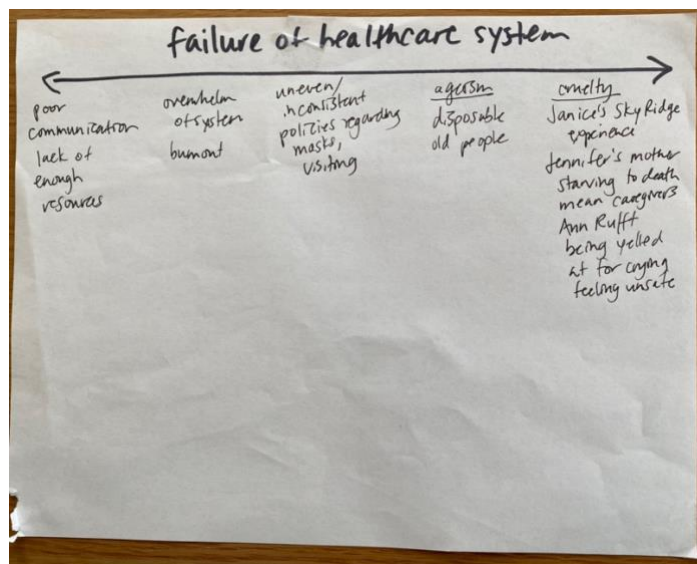 failure of healthcare system
poor
communication
lack of
enough
resources
overwhelm
of system
burnout
uneven/
inconsistent
policies regarding
masks,
visiting
ageism
disposable
old people
cruelty
Janice's Sky Ridge
experience
Jennifer's mother
starving to death
mean caregivers
Ann Rufft
being yelled
at for crying
feeling unsafe